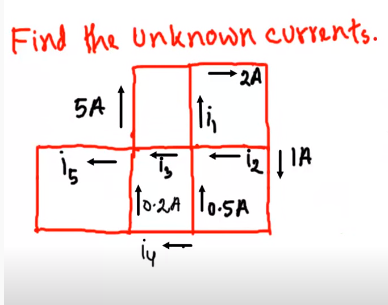 Find the unknown currents.
→ 2A
5A ↑ ↑ i₁
i₅ ← ← i₃ ← i₂ ↓ 1A
↑ 0.2A ↑ 0.5A
i₄ ←